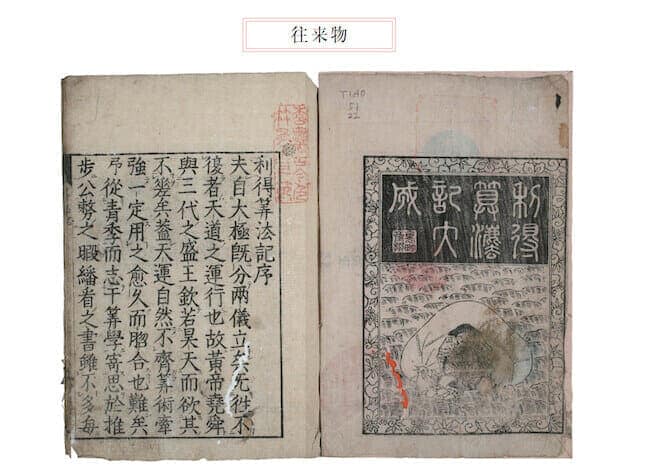 往来物
T1A0
51
22
利得
筭法
記大
成
利得筭法記序
夫自大極既分兩儀立矣无往不
復者天道之運行也故黃帝堯舜
與三代之盛王欽若昊天而欲其
不幾矣葢天運自然不齊筭術牽
強一定用之愈久而脗合也難矣
予從青季而志于筭學寄思於推
步公務之暇繙看之書雖不多每